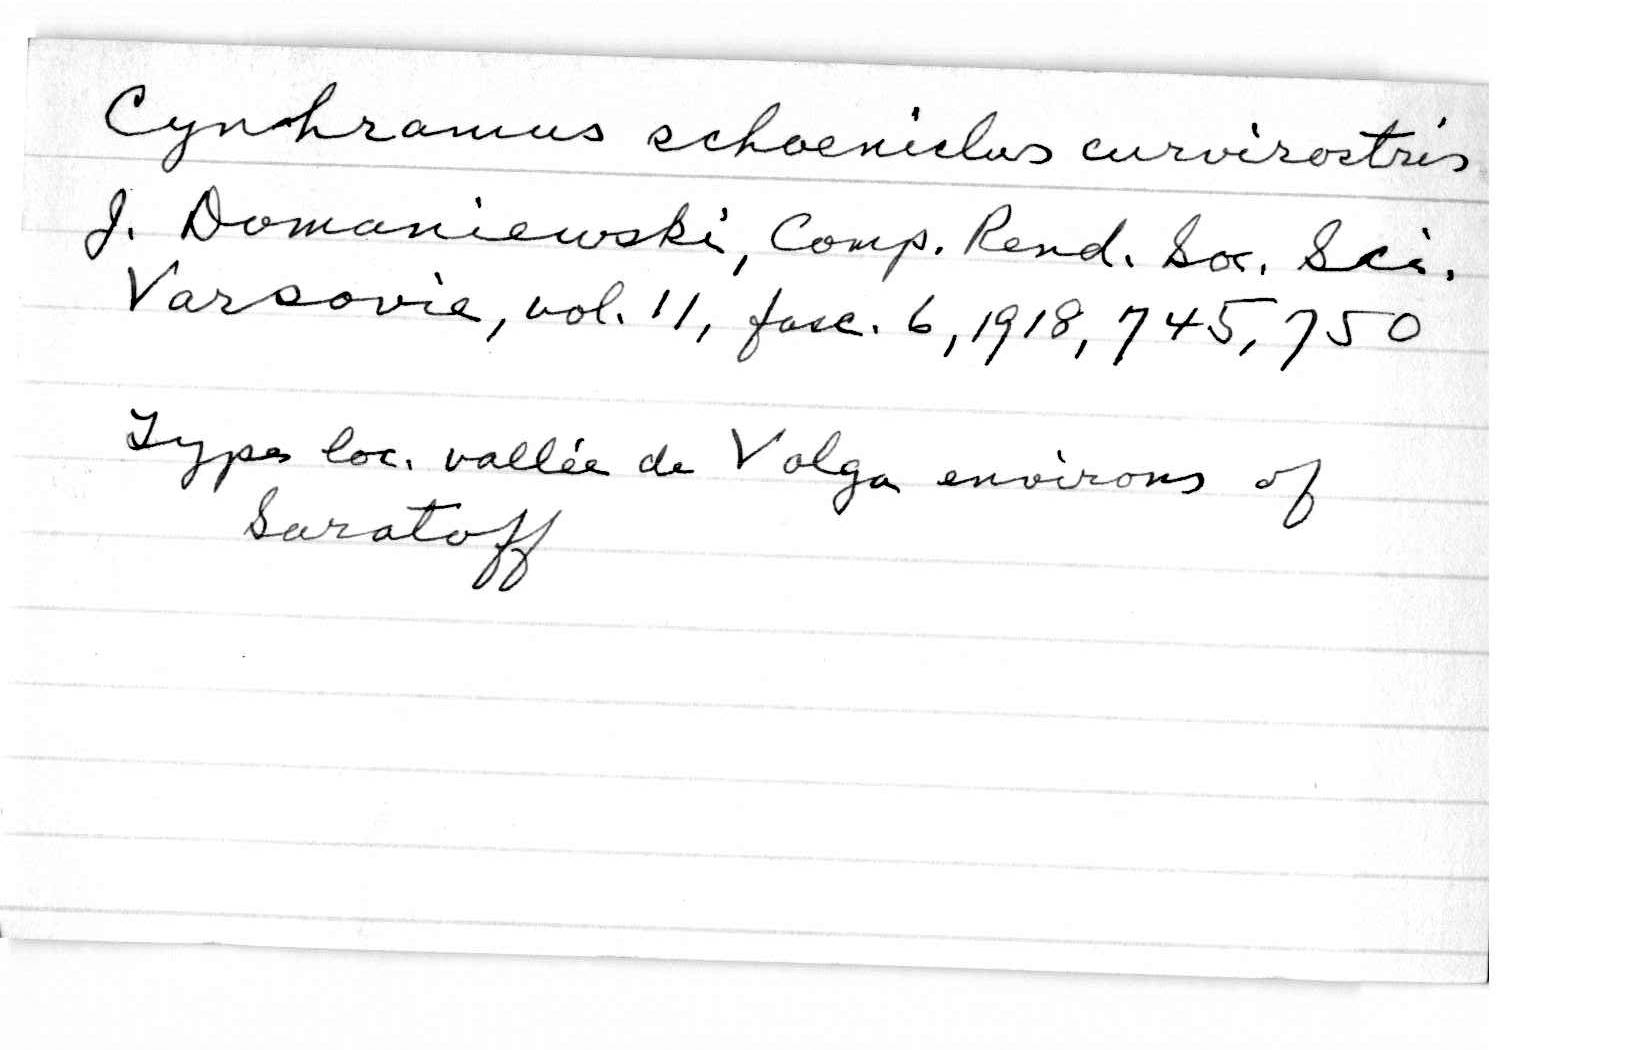 Cynchramus schoeniclus curvirostris
J. Domaniewski, Comp. Rend. Soc. Sci.
Varsovie, vol. 11, fasc. 6, 1918, 745, 750
Type loc. vallée de Volga environs of
Saratoff